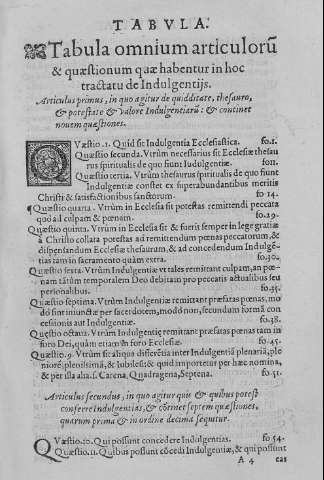 TABVLA.
Tabula omnium articulorũ
& quæstionum quæ habentur in hoc
tractatu de Indulgentijs.
Articulus primus, in quo agitur de quidditate, thesauro,
& potestate & valore Indulgentiarũ: & continet
nouem quæstiones.
QVæstio .1. Quid sit Indulgentia Ecclesiastica. fo.1.
Quæstio secunda. Vtrùm necessarius sit Ecclesiæ thesau
rus spiritualis de quo fiunt Indulgentiæ. fo11.
Quæstio tertia. Vtrùm thesaurus spiritualis de quo fiunt
Indulgentiæ constet ex superabundantibus meritis
Christi & satisfactionibus sanctorum. fo 14.
Quæstio quarta. Vtrùm in Ecclesia sit potestas remittendi peccata
quo ad culpam & pœnam. fo.29.
Quæstio quinta. Vtrùm in Ecclesia sit & fuerit semper in lege gratiæ
à Christo collata potestas ad remittendum pœnas peccatorum, &
dispensandum Ecclesiæ thesaurum, & ad concedendum Indulgē-
tias tam in sacramento quàm extra. fo.30.
Quæstio sexta. Vtrùm Indulgentiæ vt tales remittant culpam, an pœ-
nam tãtùm temporalem Deo debitam pro peccatis actualibus seu
personalibus. fo.35.
Quæstio septima. Vtrùm Indulgentiæ remittant præfatas pœnas, mo
dò sint iniunctæ per sacerdotem, modò non, secundum formã con
cessionis aut Indulgentiæ. fo.38.
Quæstio octaua. Vtrùm Indulgentiæ remittant præfatas pœnas tam in
foro Dei, quàm etiam in foro Ecclesiæ. fo.45.
Quæstio.9. Vtrùm sit aliqua differẽtia inter Indulgentiã plenariã, ple
niorẽ, plenissimã, & Iubilæũ: & quid importetur per hæc nomina,
& per illa alia. s. Carena, Quadragena, Septena. fo.51.
Articulus secundus, in quo agitur quis & quibus potest
conferre Indulgentias, & cõtinet septem quæstiones,
quarum prima & in ordine decima sequitur.
QVæstio.10. Qui possunt concedere Indulgentias. fo 54.
Quæstio.11. Quibus possunt cõcedi Indulgentiæ, & qui possunt
A 4 eas